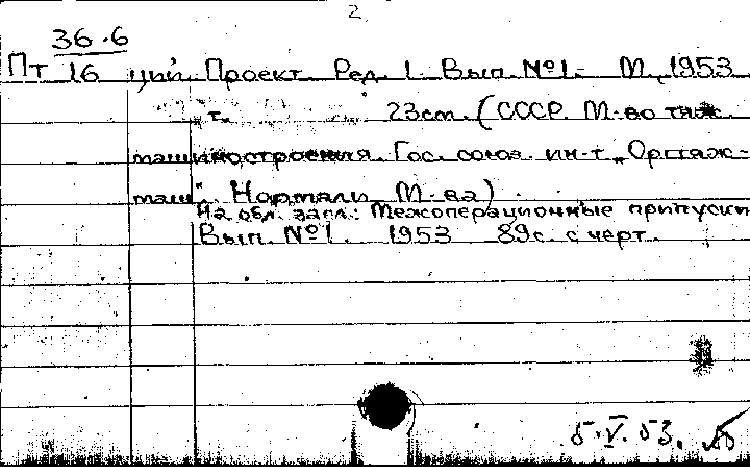 2
36.6
Пт 16 ций. Проект. Ред. 1. Вып. №1.- М., 1953
т. 23см. (СССР. М-во тяж.
машиностроения. Гос. союз. ин-т „Оргтяж-
маш". Нормали М-ва).
На обл. загл.: Межоперационные припуски
Вып. №1. 1953 89с. с черт.
5.V.53.